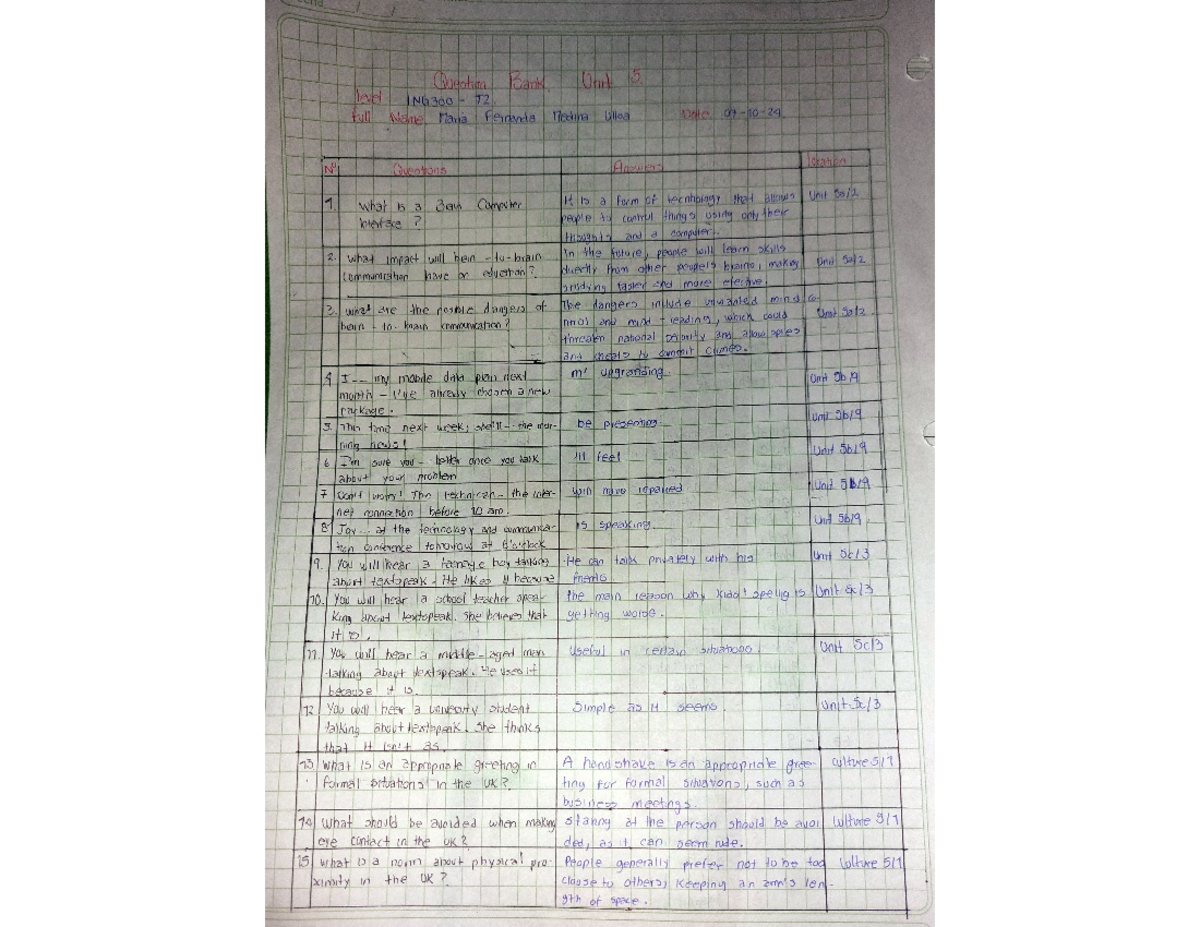 Question Bank Unit 5
Level ING300 - T2
Full Name Maria Fernanda Medina Ulloa Date 09-10-24
Nº Questions Answers location
1. What is a Bain Computer
interface ?
It is a form of technology that allows
people to control things using only their
thoughts and a computer.
Unit 5a/2
2. what impact will bein - to-brain
communication have on education?
In the future, people will learn skills
directly from other people's brains, making
studying faster and more efective.
Unit 5a/2
3. what are the posible dangers of
bein - to- brain communication?
The dangers include unwanted mind co-
ntrol and mind - reading, which could
threaten national security and allow spies
and cheats to commit crimes.
Unit 5a/2
4 I -- my mobile data plan next
month - I've already chosen a new
package.
m' upgranding.
Unit 5b/9
5. This time next week, she'll -- the mor-
ning news!
be presenting
Unit 5b/9
6 I'm sure you -- better once you talk
about your problem
'll feel
Unit 5b/9
7 Don't worry! The technician - the inter-
net connection before 10 am.
will have repaired
Unit 5b/9
8 Joy... at the technology and communica-
tion conference tomorrow at 6 o'clock
is speaking.
Unit 5b/9
9. You will hear a teenage boy talking
about textspeak. He likes it because
He can talk privately with his
friends.
Unit 5c/3
10. You will hear a school teacher spea-
king about textspeak. She believes that
it is.
the main reason why kids' spelling is
getting worse.
Unit 5c/3
11. You will hear a middle-aged man
talking about textspeak. He uses it
because it is.
useful in certain situations
Unit 5c/3
12 You will hear a university student
talking about texthpeak. She thinks
that it isn't as.
Simple as it seems.
Unit 5c/3
13 What is an appropriate greeting in
formal situations in the UK?
A handshake is an appropriate gree-
ting for formal situations, such as
business meetings.
culture 5/1
14 What should be avoided when making
eye contact in the UK?
staring at the person should be avoi
ded, as it can seem rude.
Culture 5/1
15 what is a norm about physical pro-
ximity in the UK?
People generally prefer not to be too
cloose to others, keeping an arm's len-
gth of space.
Culture 5/1